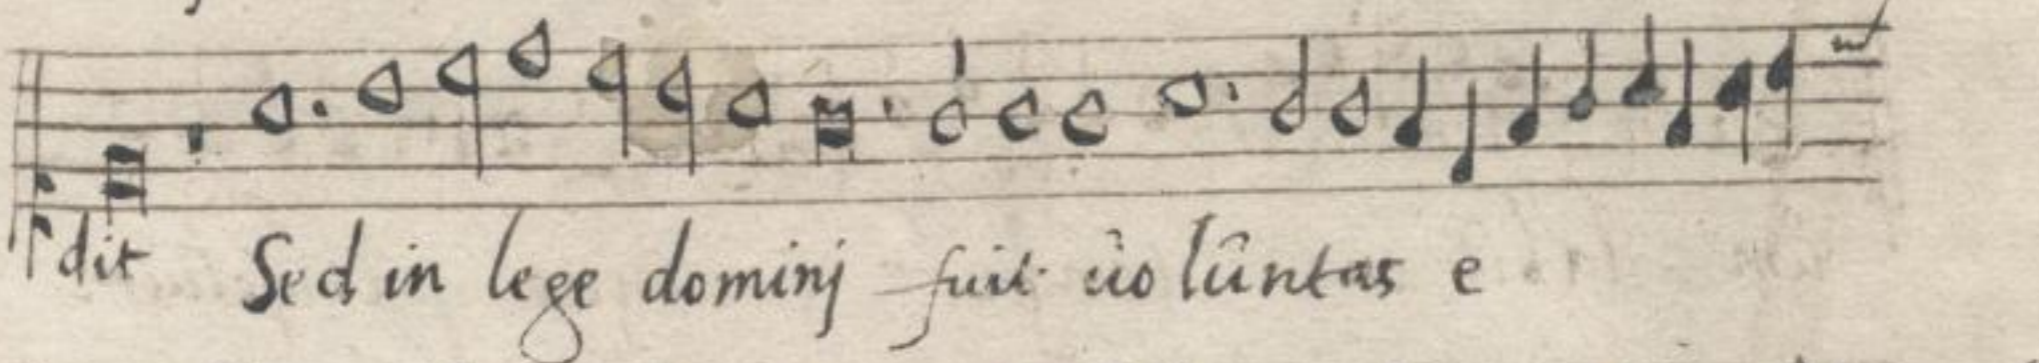 dit Sed in lege dominj fuit uoluntas e